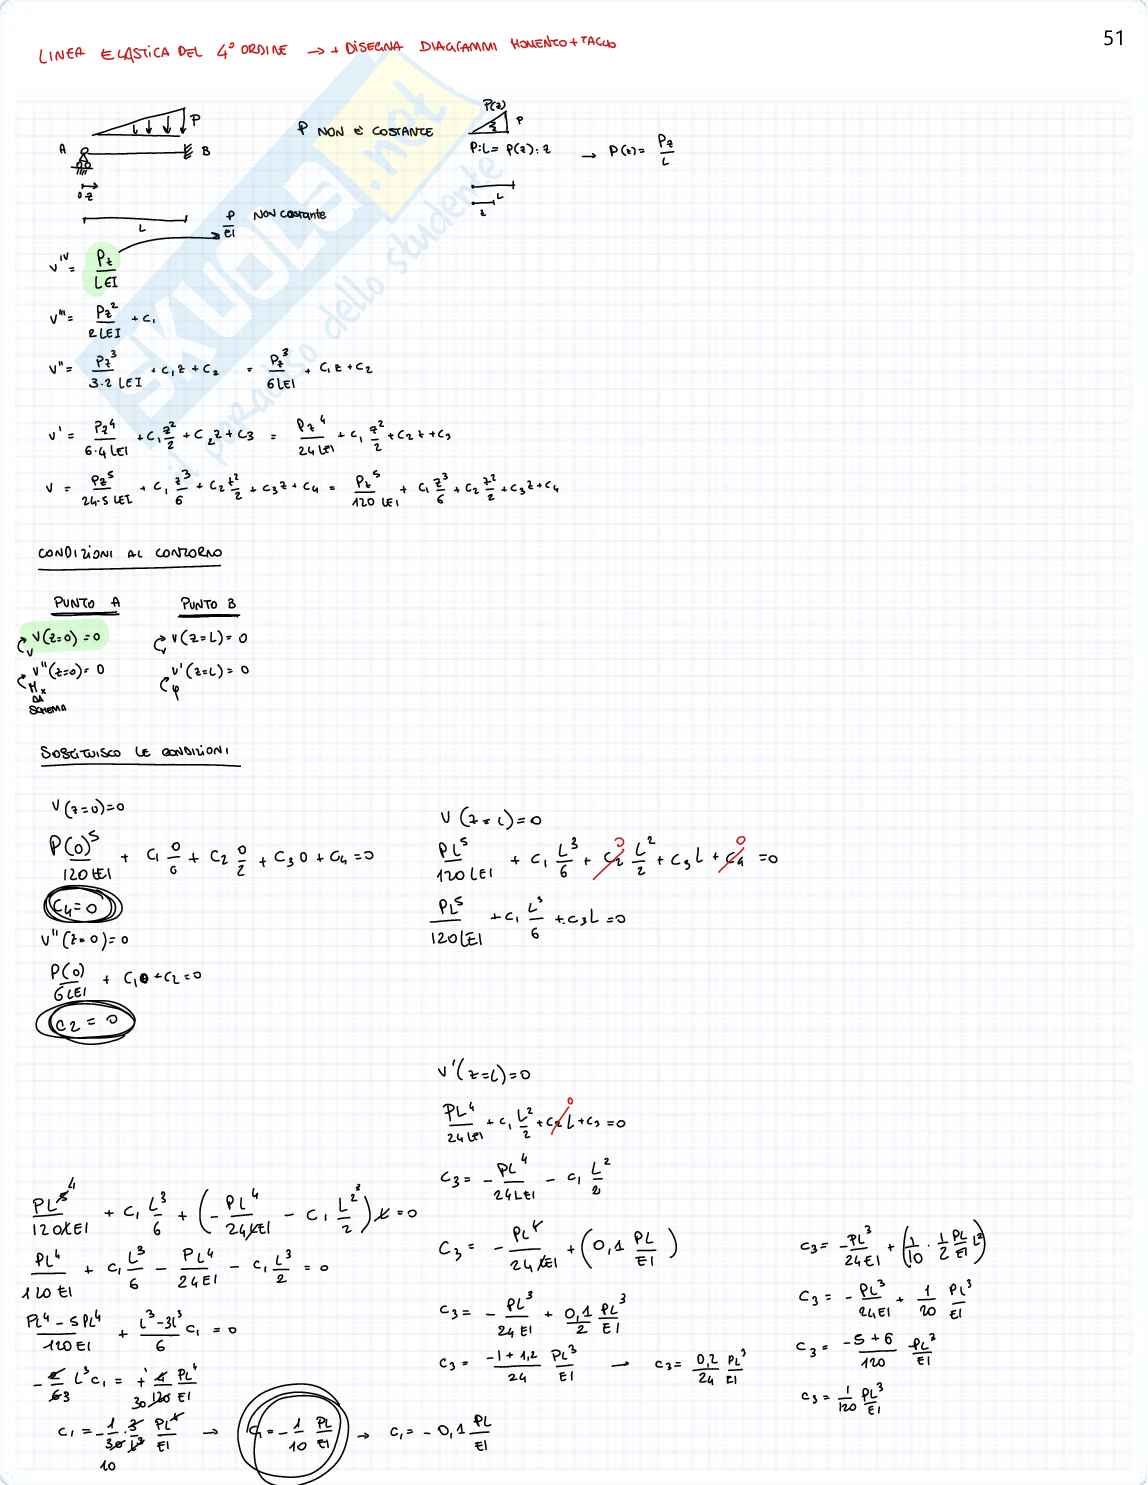 51
LINEA ELASTICA DEL 4° ORDINE → + DISEGNA DIAGRAMMI MOMENTO + TAGLIO
P
A B
0 z
L
P NON È COSTANTE
P(z)
z P
P:L = P(z):z → P(z) = Pz/L
L
z
P/EI NON COSTANTE
v^IV = Pz/LEI
v''' = Pz²/2LEI + c₁
v'' = Pz³/3·2 LEI + c₁z + c₂ = Pz³/6LEI + c₁z + c₂
v' = Pz⁴/6·4LEI + c₁ z²/2 + c₂z + c₃ = Pz⁴/24LEI + c₁ z²/2 + c₂z + c₃
v = Pz⁵/24·5 LEI + c₁ z³/6 + c₂ z²/2 + c₃z + c₄ = Pz⁵/120 LEI + c₁ z³/6 + c₂ z²/2 + c₃z + c₄
CONDIZIONI AL CONTORNO
PUNTO A PUNTO B
v(z=0) = 0 v(z=L) = 0
v v
v''(z=0) = 0 v'(z=L) = 0
Mx φ
DA
SCHEMA
SOSTITUISCO LE CONDIZIONI
v(z=0)=0
P(0)⁵/120LEI + c₁ 0/6 + c₂ 0/2 + c₃0 + c₄ = 0
c₄=0
v''(z=0)=0
P(0)/6LEI + c₁0 + c₂ = 0
c₂ = 0
v(z=L)=0
PL⁵/120LEI + c₁ L³/6 + c₂ L²/2 + c₃L + c₄ = 0
0 0
PL⁵/120LEI + c₁ L³/6 + c₃L = 0
v'(z=L)=0
PL⁴/24LEI + c₁ L²/2 + c₂L + c₃ = 0
0
c₃ = - PL⁴/24LEI - c₁ L²/2
PL⁵ ⁴/120LEI + c₁ L³/6 + (- PL⁴/24LEI - c₁ L²/2) L = 0
PL⁴/120EI + c₁ L³/6 - PL⁴/24EI - c₁ L³/2 = 0
PL⁴-5PL⁴/120EI + L³-3L³/6 c₁ = 0
- 2/6 3 L³c₁ = + 4/120 1 30 PL⁴/EI
c₁ = - 1/30 · 3/L³ PL⁴/EI → c₁ = - 1/10 PL/EI → c₁ = - 0,1 PL/EI
10
c₃ = - PL⁴/24LEI + (0,1 PL/EI)
c₃ = - PL³/24EI + 0,1/2 PL³/EI
c₃ = -1+1,2/24 PL³/EI → c₃ = 0,2/24 PL³/EI
c₃ = - PL³/24EI + (1/10 · 1/2 PL/EI L²)
c₃ = - PL³/24EI + 1/20 PL³/EI
c₃ = -5+6/120 PL³/EI
c₃ = 1/120 PL³/EI
SKUOLA.net
il paradiso dello studente